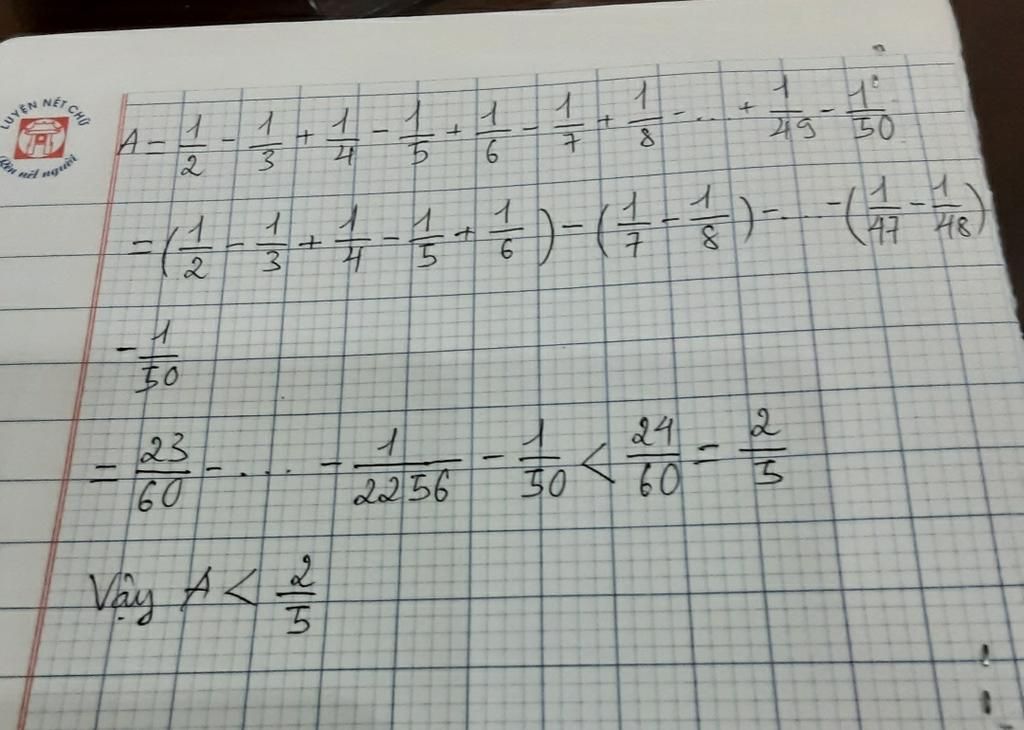 LUYỆN NÉT CHỮ
Rèn nết người
A = 1/2 - 1/3 + 1/4 - 1/5 + 1/6 - 1/7 + 1/8 - ... + 1/49 - 1/50
= (1/2 - 1/3 + 1/4 - 1/5 + 1/6) - (1/7 - 1/8) - ... - (1/47 - 1/48)
- 1/50
= 23/60 - .... - 1/2256 - 1/50 < 24/60 = 2/5
Vậy A < 2/5